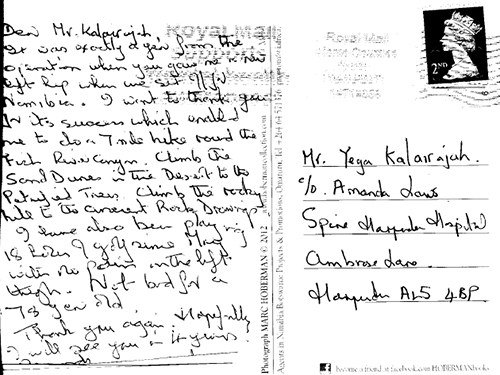 Dear Mr. Kalairajah,
It was exactly a year from the
operation when you gave me a new
left hip when we set off for
Namibia. I want to thank you
for its success which enabled
me to do a 7 mile hike round the
Fish River Canyon. Climb the
Sand Dunes in the Desert to the
Petrified Trees. Climb the rocky
hill to the ancient Rock Drawings
I have also been playing
18 holes of golf since May
with no pain in the left
thigh. Not bad for a
year old.
Thank you again. Hopefully
I will see you in
Royal Mail
supports
Photograph MARC HOBERMAN © 2012
Agents in Namibia & Botswana: Projects & Promotions, Omaruru, Tel + 264 64 571376
Royal Mail
Home Counties
2ND
Mr. Yega Kalairajah.
c/o Amanda Laws
Spire Harpenden Hospital
Ambrose Lane
Harpenden AL5 4BP
become a friend at facebook.com/HOBERMANbooks